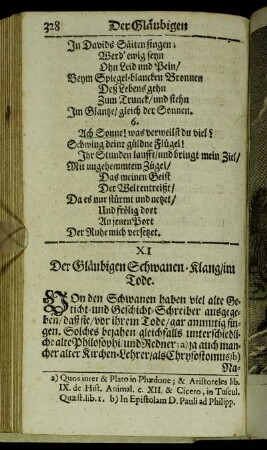 328 Der Gläubigen
In Davids Säiten singen;
Werd' ewig seyn
Ohn Leid und Pein/
Beym Spiegel-blancken Bronnen
Deß Lebens gehn
Zum Trunck/ und stehn
Im Glantze/ gleich der Sonnen.
6.
Ach Sonne! was verweilst du viel?
Schwing deine güldne Flügel!
Ihr Stunden laufft/ und bringt mein Ziel/
Mit ungehemmtem Zügel/
Das meinen Geist
Der Welt entreißt/
Da es nur stürmt und netzet/
Und frölig dort
An jenen Port
Der Ruhe mich versetzet.
XI
Der Gläubigen Schwanen-Klang/im
Tode.
VOn den Schwanen haben viel alte Ge-
ticht- und Geschicht-Schreiber ausgege-
ben/ daß sie/ vor ihrem Tode/ gar anmutig sin-
gen. Solches bejahen gleichfalls unterschiedli-
che alte Philosophi/ und Redner: a) ja auch man-
cher alter Kirchen-Lehrer/ als Chrysostomus/ b)
Na-
a) Quos inter & Plato in Phædone; & Aristoteles lib.
IX. de Hist. Animal. c. XII. & Cicero, in Tuscul.
Quæst. lib. 1. b) In Epistolam D. Pauli ad Philipp.